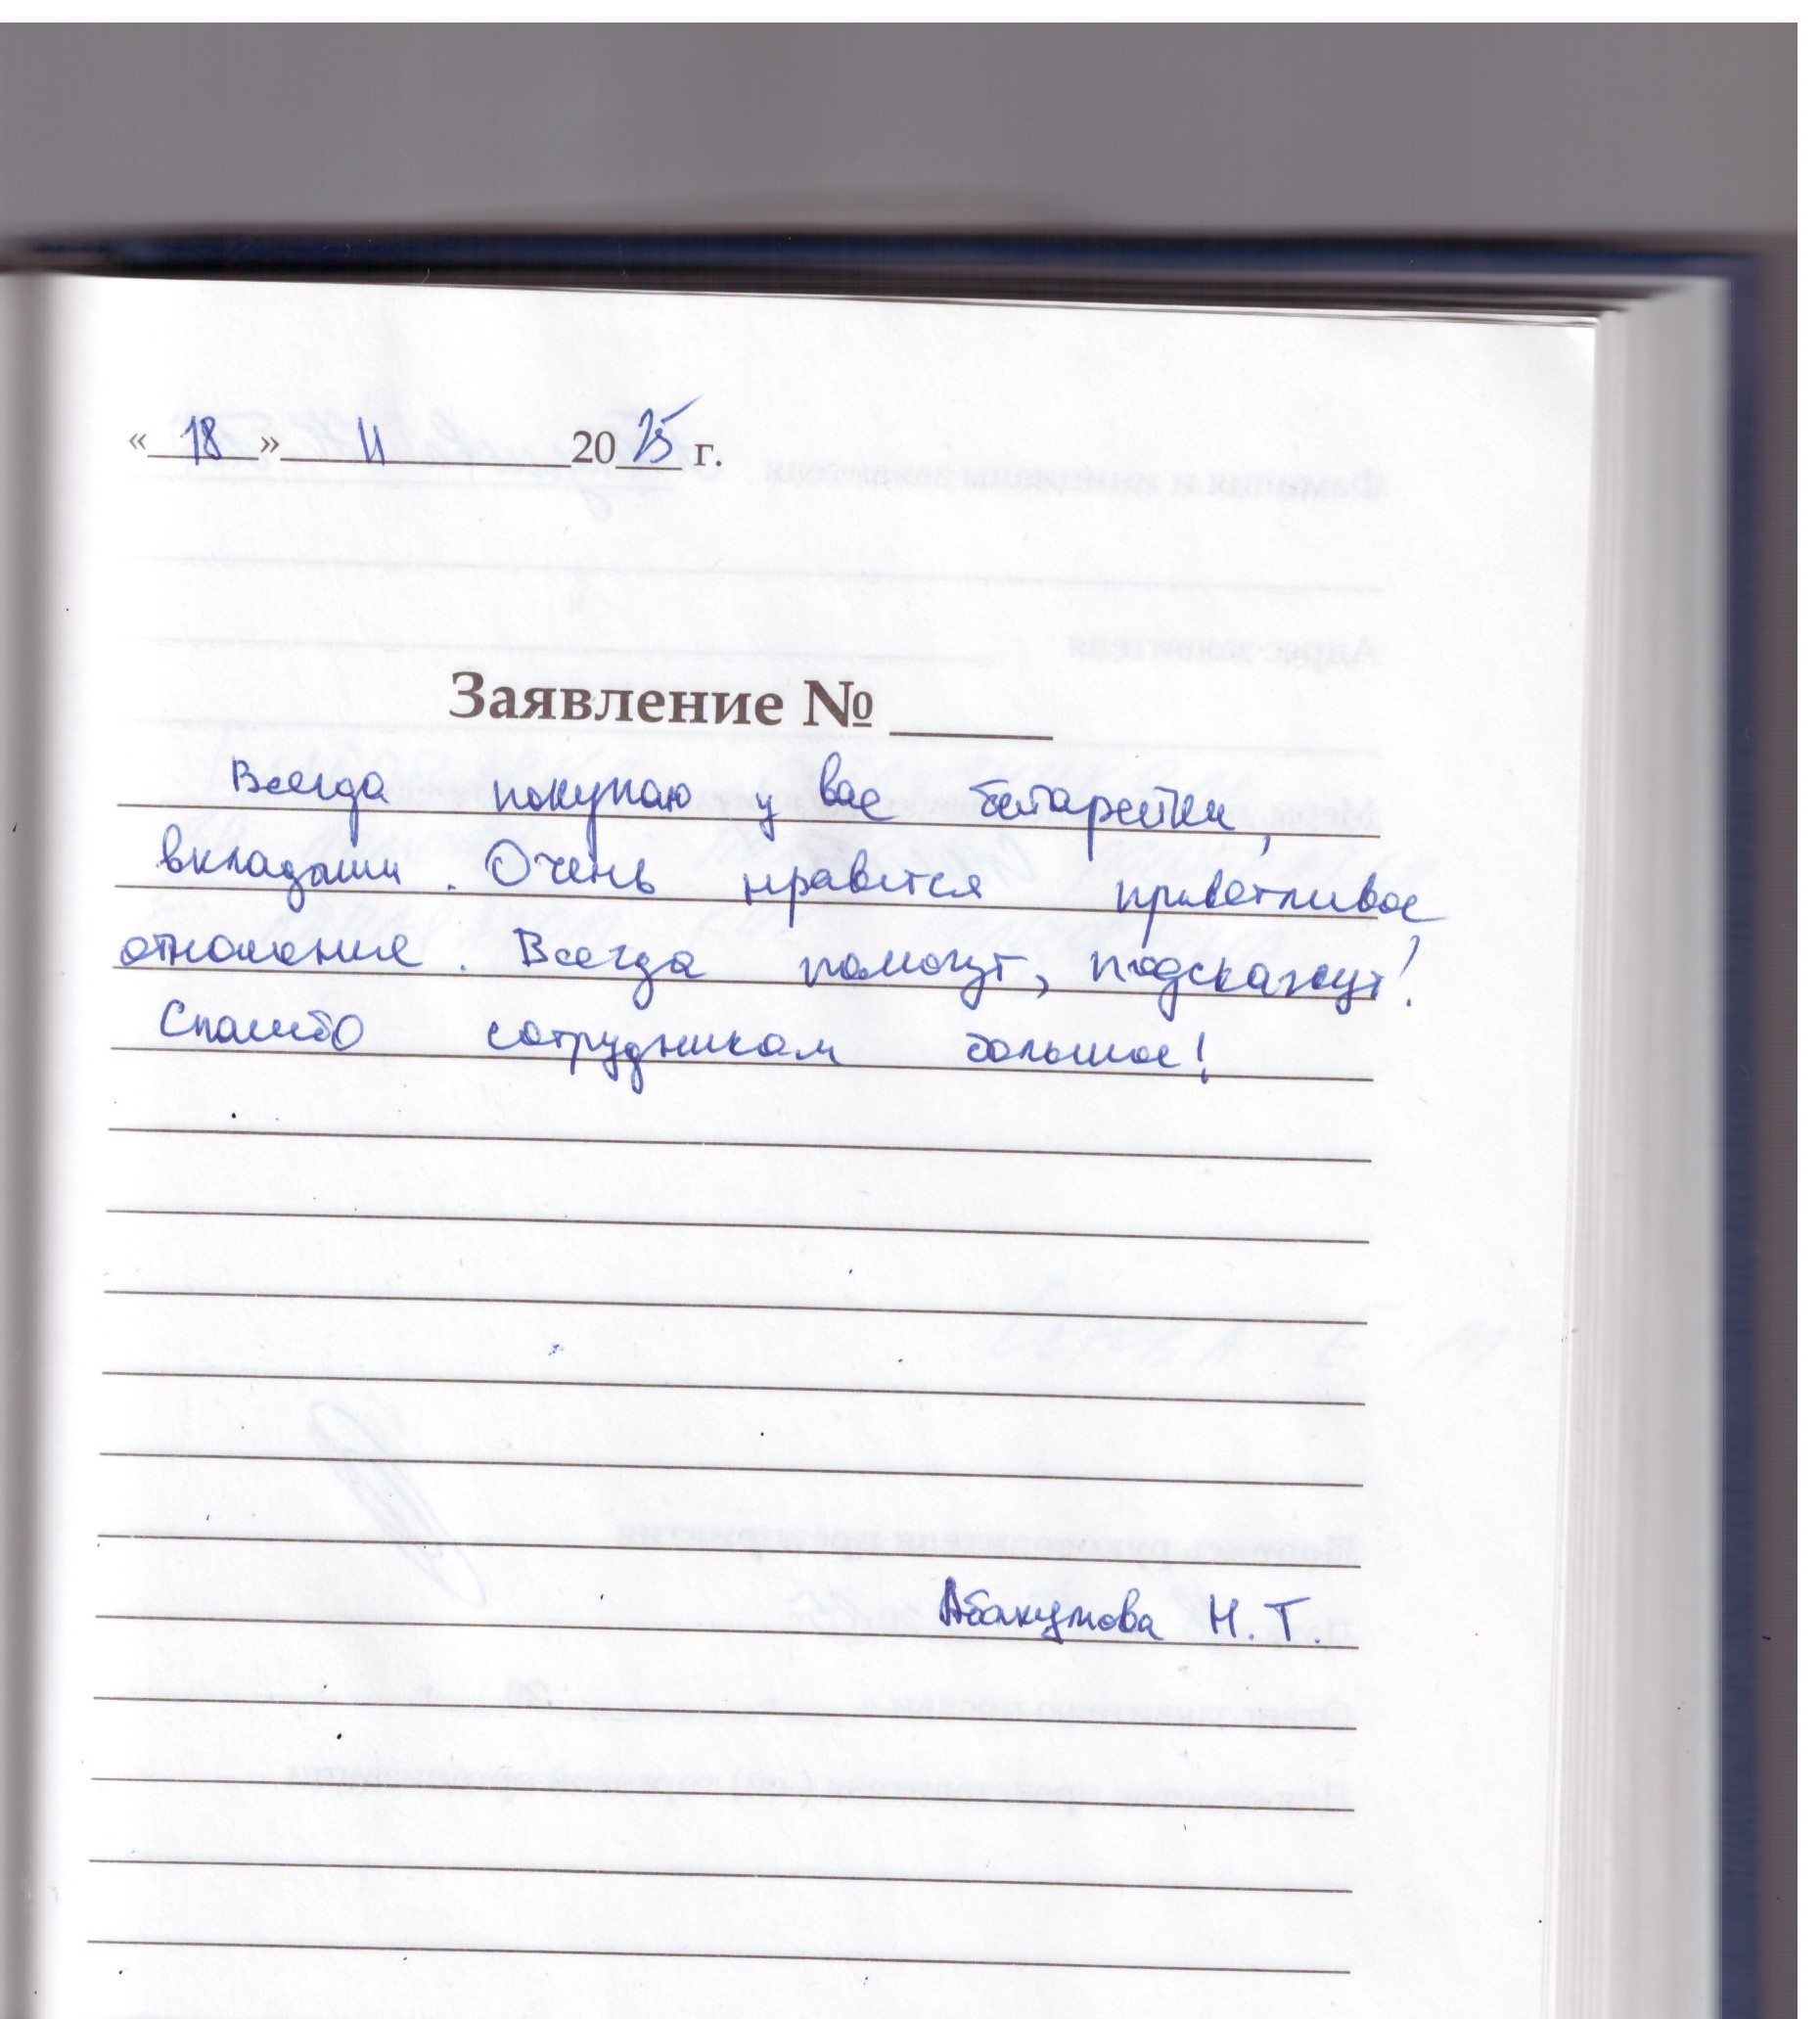 « 18 » 11 2025 г.
Заявление №
Всегда покупаю у вас батарейки,
вкладыши. Очень нравится приветливое
отношение. Всегда помогут, подскажут!
Спасибо сотрудникам большое!
Абакумова Н. Т.